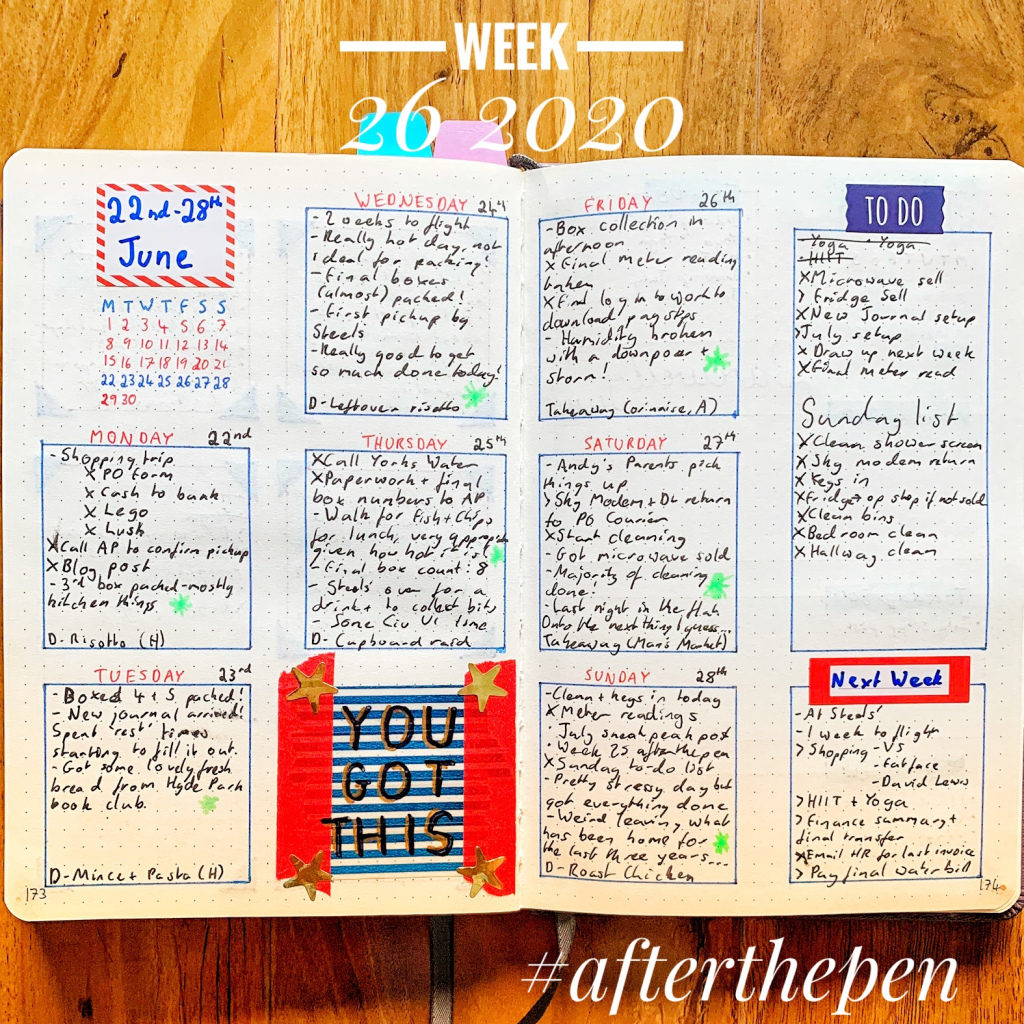 WEEK
26 2020
22nd-28th
June
M T W T F S S
1 2 3 4 5 6 7
8 9 10 11 12 13 14
15 16 17 18 19 20 21
22 23 24 25 26 27 28
29 30
MONDAY 22nd
- Shopping trip
X PO form
X Cash to bank
X Lego
X Lush
X Call AP to confirm pickup
X Blog post
- 3rd box packed-mostly
kitchen things
D- Risotto (H)
TUESDAY 23rd
- Boxes 4 + 5 packed!
- New journal arrived!
Spent 'rest' times
starting to fill it out.
- Got some lovely fresh
bread from Hyde Park
book club.
D- Mince + Pasta (H)
173
WEDNESDAY 24th
- 2 weeks to flight
- Really hot day, not
ideal for packing!
- Final boxes
(almost) packed!
- First pickup by
Steels
- Really good to get
so much done today!
D- Leftover risotto
THURSDAY 25th
X Call Yorks Water
X Paperwork + final
box numbers to AP
- Walk for Fish + Chips
for lunch, very
given how hot it is!
- Final box count: 8
- Steels' over for a
drink + to collect bits
- Some Civ VI time
D- Cupboard raid
YOU
GOT
THIS
FRIDAY 26th
- Box collection in
afternoon
X Final meter reading
taken
X Final log in to work to
download payslips
- Humidity broken
with a downpoor +
storm!
Takeaway (A)
SATURDAY 27th
- Andy's Parents pick
things up
> Sky Modem + return
to PO Courier
X Start cleaning
- Got microwave sold
- Majority of cleaning
done!
- Last night in the flat
Onto the next thing I guess...
Takeaway (Man's Market)
SUNDAY 28th
- Clean + keys in today
X Meter readings
· July sneak peak post
· Week 25 afterthepen
X Sunday to-do list
- Pretty stressy day but
got everything done
- Weird leaving what
has been home for
the last three years...
D- Roast Chicken
TO DO
- Yoga · Yoga
- HIIT
X Microwave sell
> Fridge sell
X New Journal setup
> July setup
X Draw up next week
X Final meter read
Sunday list
X Clean shower screen
X Sky modem return
X Keys in
X Fridge op shop if not sold
X Clean bins
X Bedroom clean
X Hallway clean
Next Week
- At Steels'
- 1 week to flight
> Shopping - VS
- Fatface
- David Lewis
> HIIT + Yoga
> Finance summary +
final transfer
X Email HR for last invoice
> Pay final water bill
174
#afterthepen